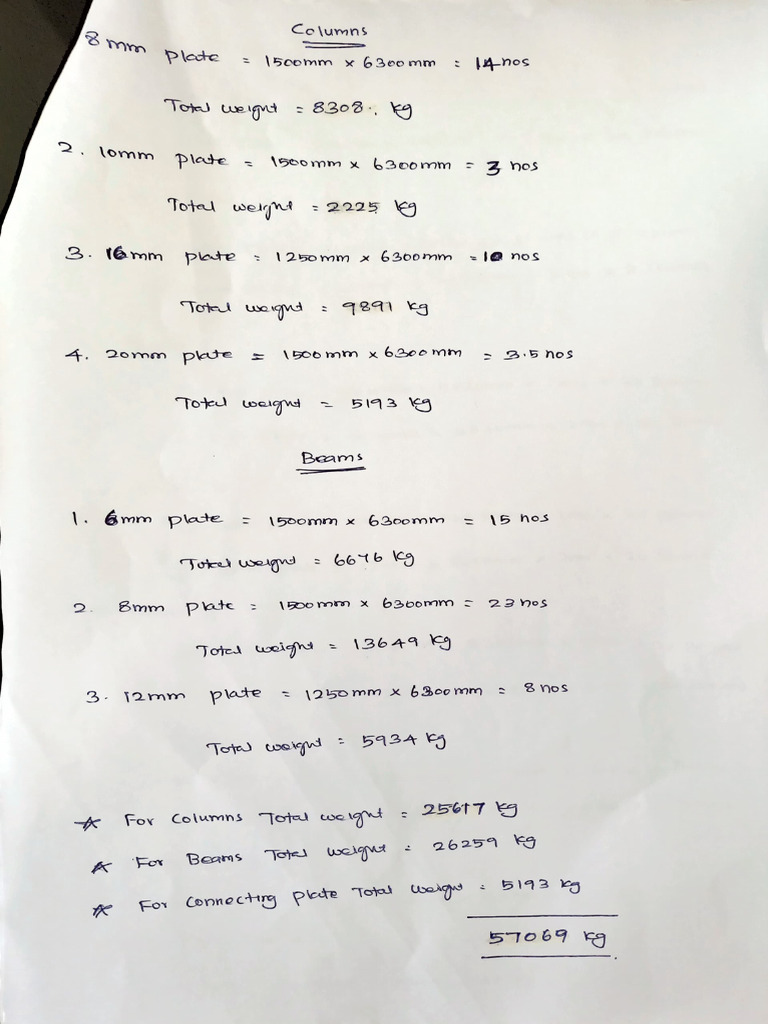 Columns
8mm plate = 1500mm x 6300mm = 14nos
Total weight = 8308. kg
2. 10mm plate = 1500mm x 6300mm = 3 nos
Total weight = 2225 kg
3. 16mm plate = 1250mm x 6300mm = 10 nos
Total weight = 9891 kg
4. 20mm plate = 1500mm x 6300mm = 3.5 nos
Total weight = 5193 kg
Beams
1. 6mm plate = 1500mm x 6300mm = 15 nos
Total weight = 6676 kg
2. 8mm plate = 1500mm x 6300mm = 23 nos
Total weight = 13649 kg
3. 12mm plate = 1250mm x 6300mm = 8 nos
Total weight = 5934 kg
* For Columns Total weight = 25617 kg
* For Beams Total weight = 26259 kg
* For Connecting Plate Total weight = 5193 kg
57069 kg